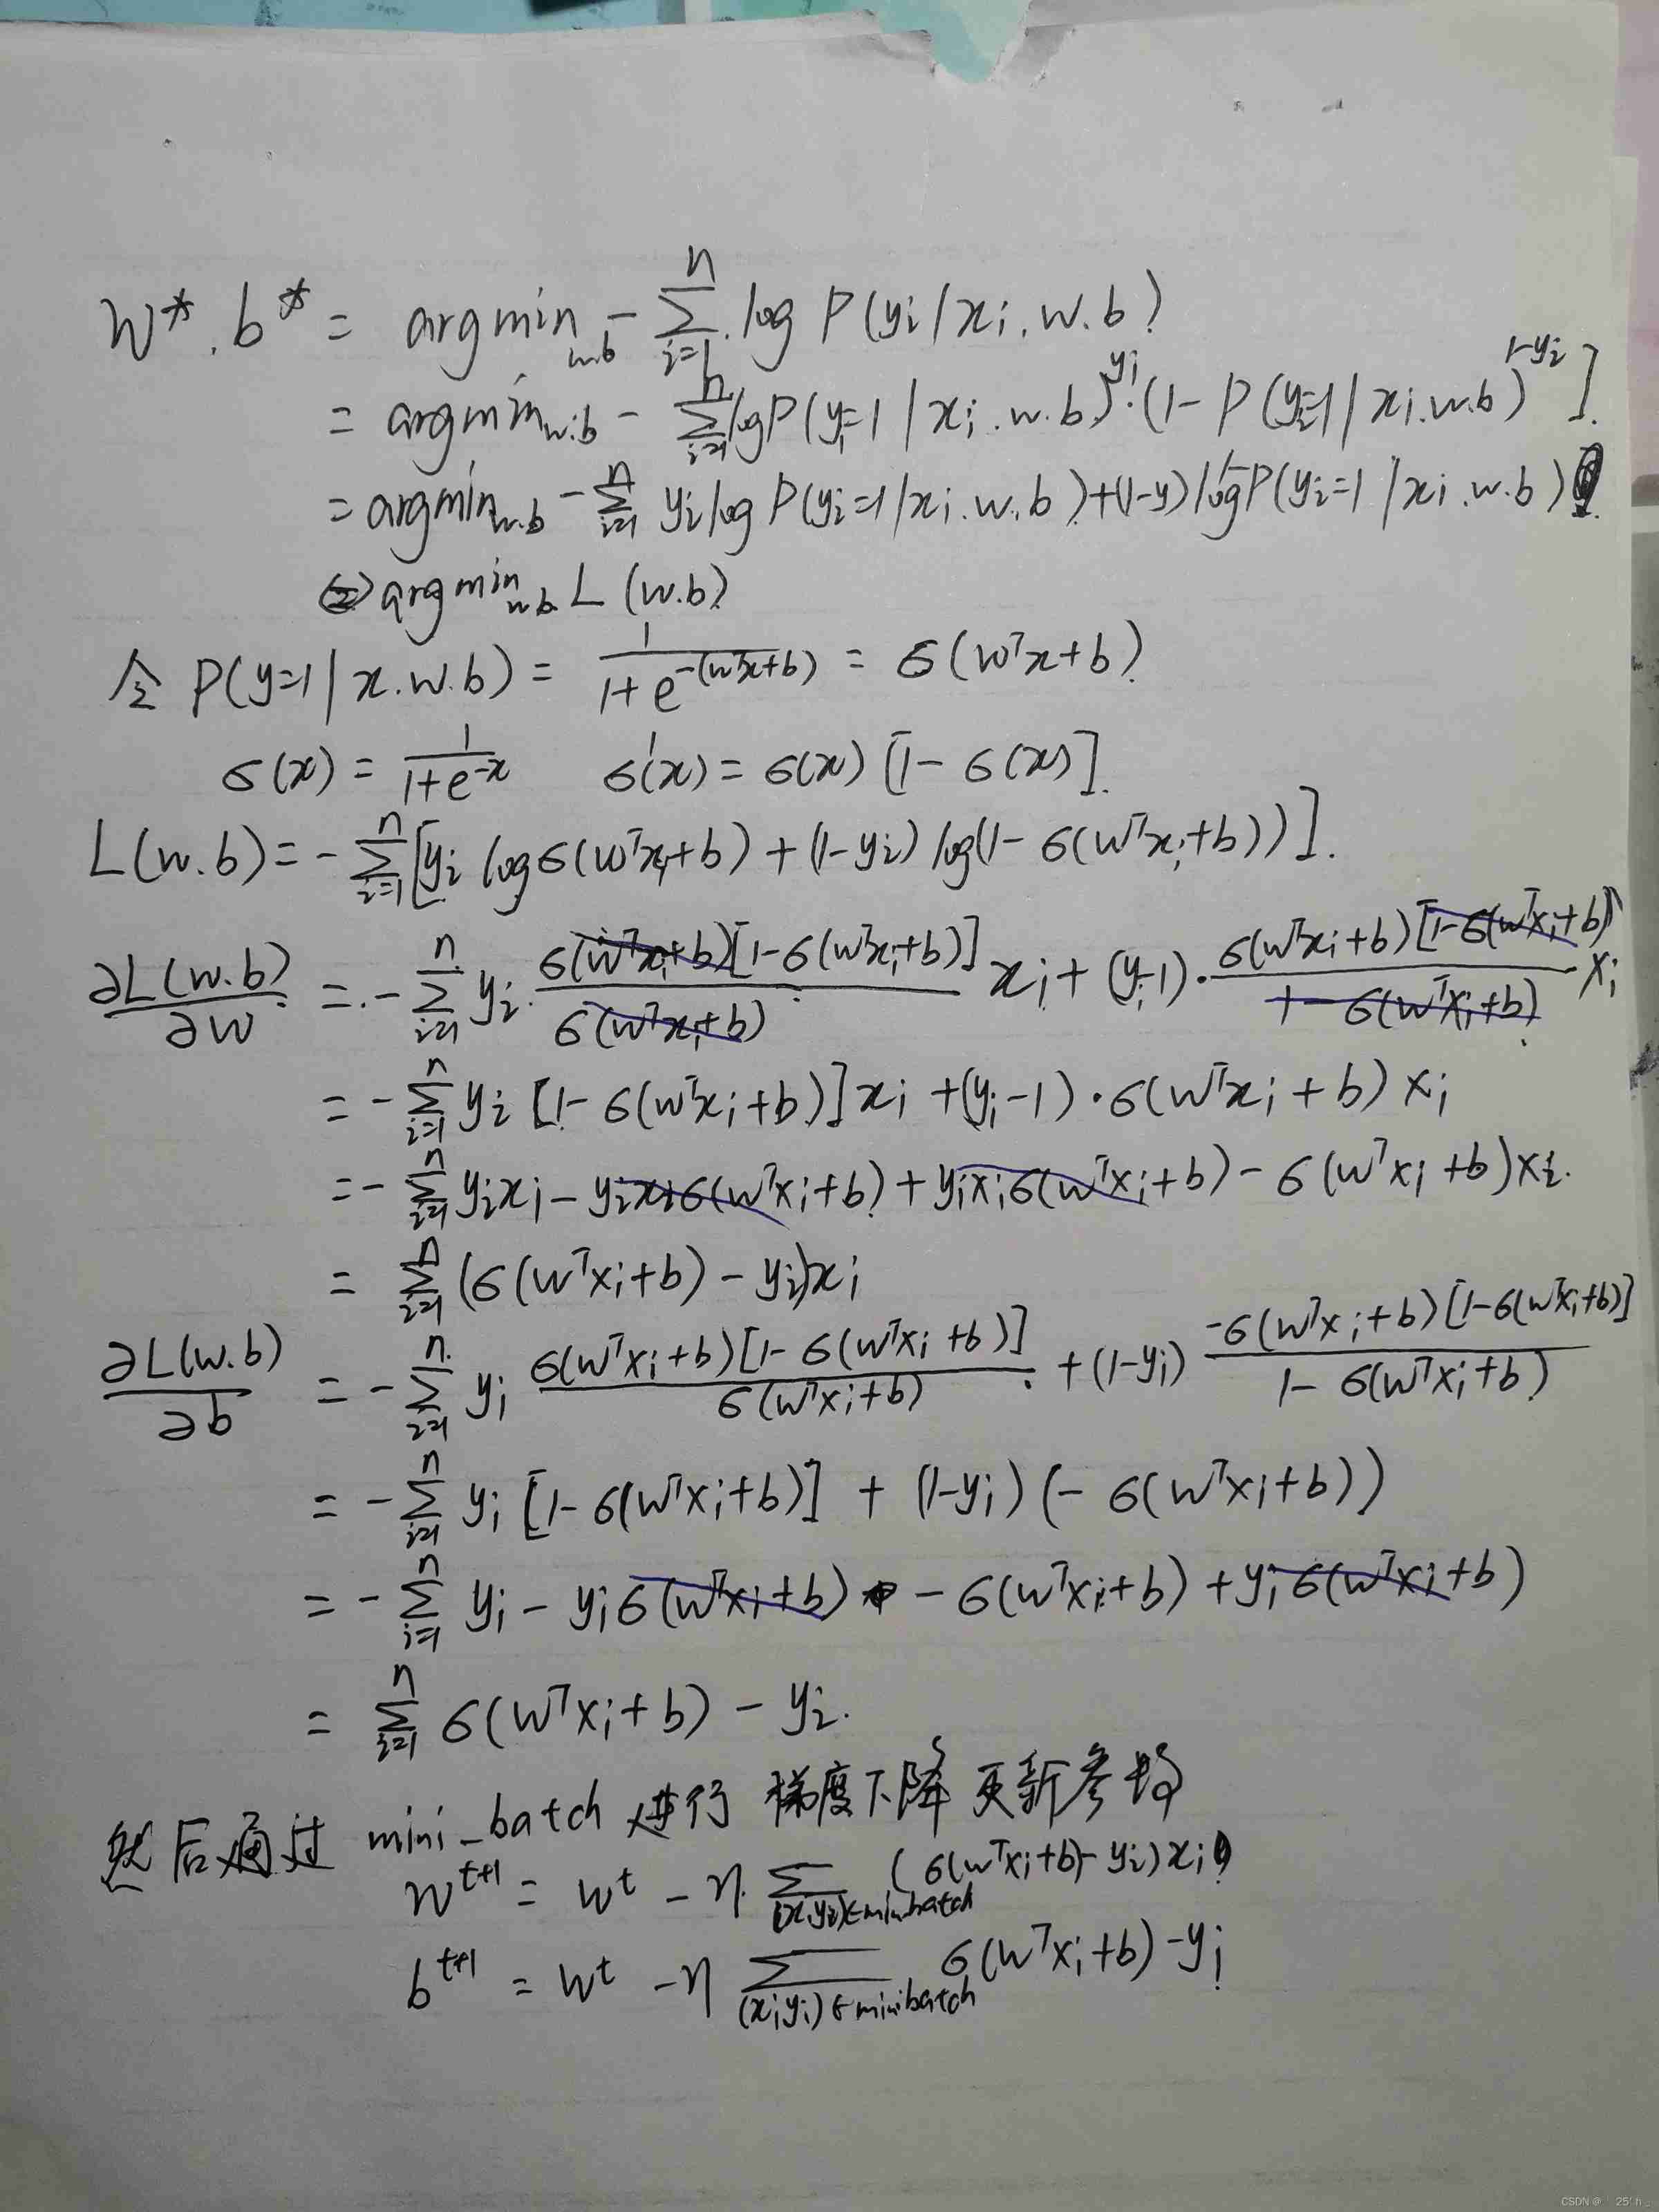 w*, b* = argmin_{w.b} - ∑_{i=1}^{n} log P(yi|xi.w.b)
= argmin_{w.b} - ∑_{i=1}^{n} log P(yi=1|xi.w.b)^{yi}·(1-P(yi=1|xi.w.b)^{1-yi}].
= argmin_{w.b} - ∑_{i=1}^{n} yi log P(yi=1|xi.w.b)+(1-y) log 1-P(yi=1|xi.w.b)
⇔ argmin_{w.b} L(w.b)
令 P(y=1|x.w.b) = 1/(1+e^{-(w^T x+b)}) = σ(w^T x+b)
σ(x) = 1/(1+e^{-x}) σ'(x) = σ(x)[1-σ(x)].
L(w.b) = -∑_{i=1}^{n}[yi log σ(w^T xi+b) + (1-yi) log(1-σ(w^T xi+b))].
∂L(w.b)/∂w = -∑_{i=1}^{n} yi · σ(w^T xi+b)[1-σ(w^T xi+b)]/σ(w^T xi+b) xi + (yi-1)· σ(w^T xi+b)[1-σ(w^T xi+b)]/1-σ(w^T xi+b) · xi
= -∑_{i=1}^{n} yi [1-σ(w^T xi+b)]xi + (yi-1)·σ(w^T xi+b)xi
= -∑_{i=1}^{n} yixi - yixiσ(w^T xi+b) + yixiσ(w^T xi+b) - σ(w^T xi+b)xi.
= ∑_{i=1}^{n} (σ(w^T xi+b) - yi)xi
∂L(w.b)/∂b = -∑_{i=1}^{n} yi σ(w^T xi+b)[1-σ(w^T xi+b)]/σ(w^T xi+b) + (1-yi) -σ(w^T xi+b)[1-σ(w^T xi+b)]/1-σ(w^T xi+b)
= -∑_{i=1}^{n} yi [1-σ(w^T xi+b)] + (1-yi)(-σ(w^T xi+b))
= -∑_{i=1}^{n} yi - yiσ(w^T xi+b) - σ(w^T xi+b) + yiσ(w^T xi+b)
= ∑_{i=1}^{n} σ(w^T xi+b) - yi.
然后通过 mini_batch 进行 梯度下降 更新参数
w^{t+1} = w^t - η·∑_{(xi,yi)∈minibatch} (σ(w^T xi+b)-yi)xi
b^{t+1} = w^t - η ∑_{(xi,yi)∈minibatch} σ(w^T xi+b)-yi
CSDN @